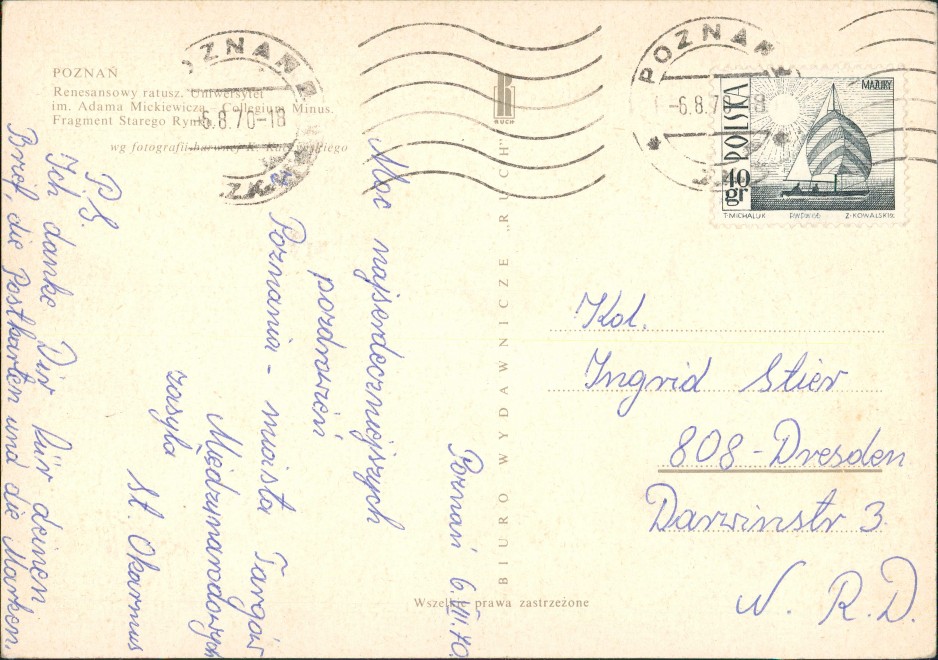 POZNAŃ
Renesansowy ratusz. Uniwersytet
im. Adama Mickiewicza - Collegium Minus.
Fragment Starego Rynku
wg fotografii barwnej K.
POZNAŃ 2
-6.8.70-18
POZNAŃ
-6.8.70-18
RUCH
BIURO WYDAWNICZE „RUCH”
Wszelkie prawa zastrzeżone
POLSKA
40 gr
MAZURY
T. MICHALUK PWPW 66 Z. KOWALSKI sc.
Poznań 6.VIII.70.
Moc najserdeczniejszych
pozdrowień
Poznania - miasta Targów
Międzynarodowych
zasyła
St. Okarmus
P.S.
Ich danke Dir für deinen
Brief, die Postkarten und die Marken.
Kol.
Ingrid Stier
808-Dresden
Darwinstr 3.
N. R. D.